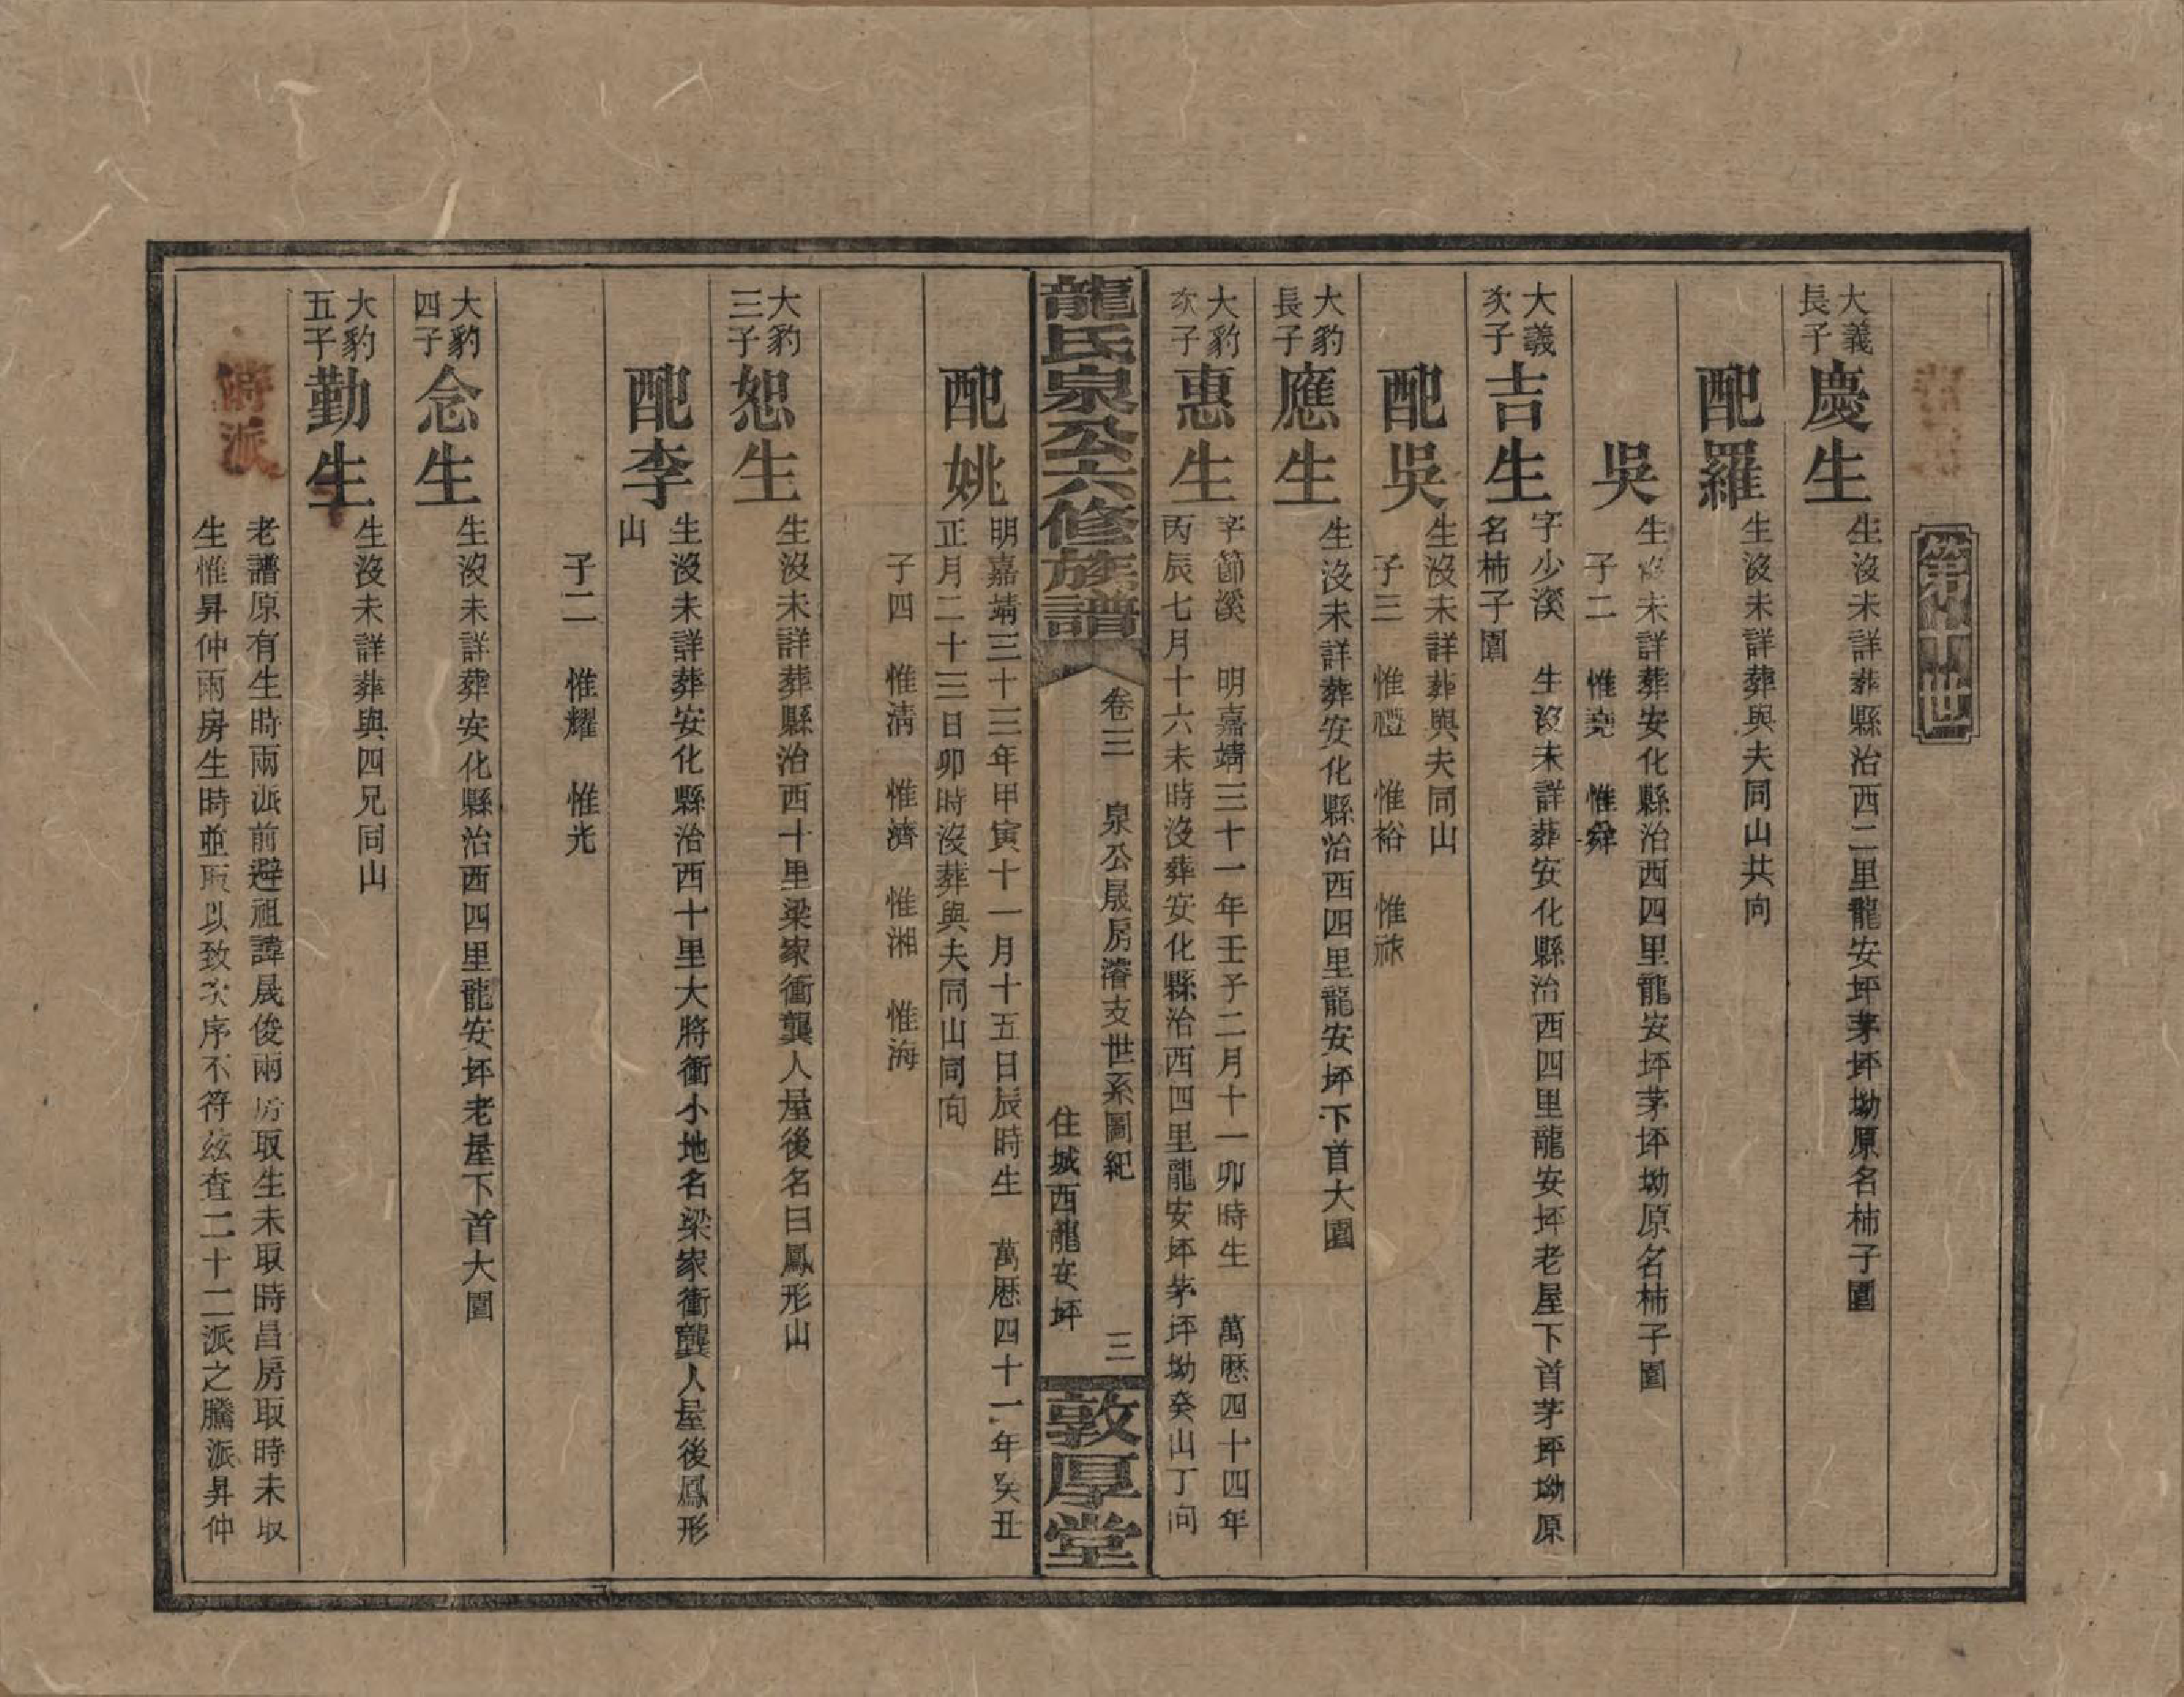 第十世
大義
長子
慶生
生沒未詳葬縣治西二里龍安坪茅坪坳原名柿子園
配羅
生沒未詳葬與夫同山共向
吳
生沒未詳葬安化縣治西四里龍安坪茅坪坳原名柿子園
子二　惟堯　惟舜
大義
次子
吉生
字少溪　生沒未詳葬安化縣治西四里龍安坪老屋下首茅坪坳原
名柿子園
配吳
生沒未詳葬與夫同山
子三　惟禮　惟裕　惟
大豹
長子
應生
生沒未詳葬安化縣治西四里龍安坪下首大園
大豹
次子
惠生
字節溪　明嘉靖三十一年壬子二月十一卯時生　萬歷四十四年
丙辰七月十六未時沒葬安化縣治西四里龍安坪茅坪坳癸山丁向
龍氏泉公六修族譜
卷三　泉公晟房濬支世系圖紀　三
住城西龍安坪
敦厚堂
配姚
明嘉靖三十三年甲寅十一月十五日辰時生　萬歷四十一年癸丑
正月二十三日卯時沒葬與夫同山同向
子四　惟清　惟濟　惟湘　惟海
大豹
三子
恕生
生沒未詳葬縣治西十里梁家衝龔人屋後名曰鳳形山
配李
生沒未詳葬安化縣治西十里大將衝小地名梁家衝龔人屋後鳳形
山
子二　惟耀　惟光
大豹
四子
念生
生沒未詳葬安化縣治西四里龍安坪老屋下首大園
大豹
五子
勤生
生沒未詳葬與四兄同山
時派
老譜原有生時兩派前避祖諱晟俊兩房取生未取時昌房取時未取
生惟昇仲兩房生時並取以致次序不符茲查二十二派之騰派昇仲